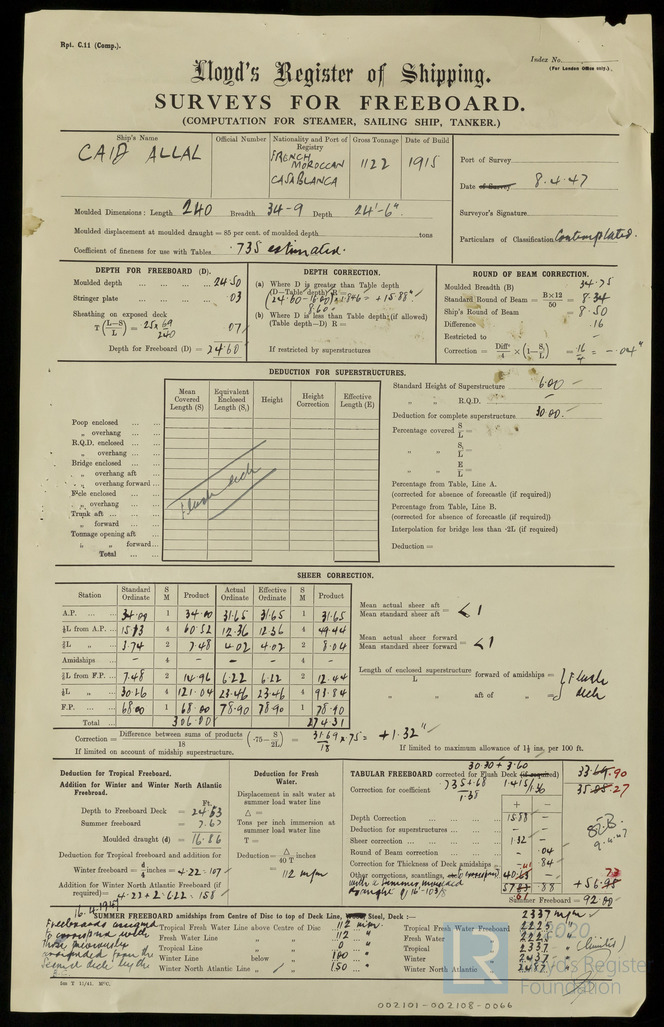 Rpt. C.11 (Comp.).
Index No.
(For London Office only.)
Lloyd's Register of Shipping.
SURVEYS FOR FREEBOARD.
(COMPUTATION FOR STEAMER, SAILING SHIP, TANKER.)
Ship's Name Official Number Nationality and Port of Registry Gross Tonnage Date of Build
CAID ALLAL FRENCH MOROCCAN CASABLANCA 1122 1915
Port of Survey
Date of Survey 8.4.47
Surveyor's Signature
Particulars of Classification Contemplated.
Moulded Dimensions: Length 240 Breadth 34-9 Depth 24'-6"
Moulded displacement at moulded draught = 85 per cent. of moulded depth tons
Coefficient of fineness for use with Tables .735 estimated.
DEPTH FOR FREEBOARD (D).
Moulded depth 24.50
Stringer plate .03
Sheathing on exposed deck
T (L-S/L) = .07
Depth for Freeboard (D) = 24.60
DEPTH CORRECTION.
(a) Where D is greater than Table depth
(D-Table depth) R =
= +15.88"
(b) Where D is less than Table depth (if allowed)
(Table depth-D) R =
If restricted by superstructures
ROUND OF BEAM CORRECTION.
Moulded Breadth (B) 34.75
Standard Round of Beam = B×12/50 = 8.34
Ship's Round of Beam = 8.50
Difference .16
Restricted to
Correction = Diff/4 × (1-S₁/L) = .16/4 = -.04"
DEDUCTION FOR SUPERSTRUCTURES.
Mean Covered Length (S) Equivalent Enclosed Length (S₁) Height Height Correction Effective Length (E)
Poop enclosed
„ overhang
R.Q.D. enclosed
„ overhang
Bridge enclosed
„ overhang aft
„ overhang forward
F'cle enclosed
„ overhang
Trunk aft
„ forward
Tonnage opening aft
„ „ forward
Total
Flush deck
Standard Height of Superstructure 6.00
„ „ R.Q.D. -
Deduction for complete superstructure 30.00
Percentage covered S/L =
„ „ S₁/L =
„ „ E/L =
Percentage from Table, Line A.
(corrected for absence of forecastle (if required))
Percentage from Table, Line B.
(corrected for absence of forecastle (if required))
Interpolation for bridge less than ·2L (if required)
Deduction =
SHEER CORRECTION.
Station Standard Ordinate S M Product Actual Ordinate Effective Ordinate S M Product
A.P. 34.00 1 34.00 31.65 31.65 1 31.65
⅙L from A.P. 15.13 4 60.52 12.36 12.36 4 49.44
⅓L „ 3.74 2 7.48 4.02 4.02 2 8.04
Amidships - 4 - - - 4 -
⅓L from F.P. 7.48 2 14.96 6.22 6.22 2 12.44
⅙L „ 30.26 4 121.04 23.46 23.46 4 93.84
F.P. 68.00 1 68.00 78.90 78.90 1 78.90
Total 306.00 274.31
Mean actual sheer aft / Mean standard sheer aft = < 1
Mean actual sheer forward / Mean standard sheer forward = < 1
Length of enclosed superstructure / L forward of amidships = } Flush
„ „ aft of „ = } deck
Correction = Difference between sums of products / 18 (·75-S/2L) = 31.69/18 × .75 = +1.32"
If limited on account of midship superstructure.
If limited to maximum allowance of 1½ ins. per 100 ft.
Deduction for Tropical Freeboard.
Addition for Winter and Winter North Atlantic Freeboard.
Ft.
Depth to Freeboard Deck = 24.53
Summer freeboard = 7.67
Moulded draught (d) = 16.86
Deduction for Tropical freeboard and addition for
Winter freeboard = d/4 inches = 4.22 = 107
Addition for Winter North Atlantic Freeboard (if required) = 4.22+2 = 6.22 = 158
Deduction for Fresh Water.
Displacement in salt water at summer load water line
Δ =
Tons per inch immersion at summer load water line
T =
Deduction = Δ/40 T inches
= 112 m/m
TABULAR FREEBOARD corrected for Flush Deck (if required)
30.30 + 3.60
Correction for coefficient
+ -
Depth Correction 15.88 -
Deduction for superstructures - -
Sheer correction 1.32 -
Round of Beam correction - .04
Correction for Thickness of Deck amidships - .84
Other corrections, scantlings,
Summer Freeboard = 92.00
9.4.47
16.4.1947
SUMMER FREEBOARD amidships from Centre of Disc to top of Deck Line, Steel, Deck:— 2337 m/m
Tropical Fresh Water Line above Centre of Disc 112 m/m
Fresh Water Line „ „ 112 „
Tropical Line „ „ 0 „
Winter Line below „ 100 „
Winter North Atlantic Line „ „ 150 „
Tropical Fresh Water Freeboard 2225 „
Fresh Water „ 2225 „
Tropical „ 2337 „ (limits)
Winter „ 2437 „
Winter North Atlantic „ 2487 „
Freeboards assigned
to correspond with
those previously
from the
2m T 11/41. M°C.
LR
© 2020
Lloyd's Register
Foundation
002101-002108-0066